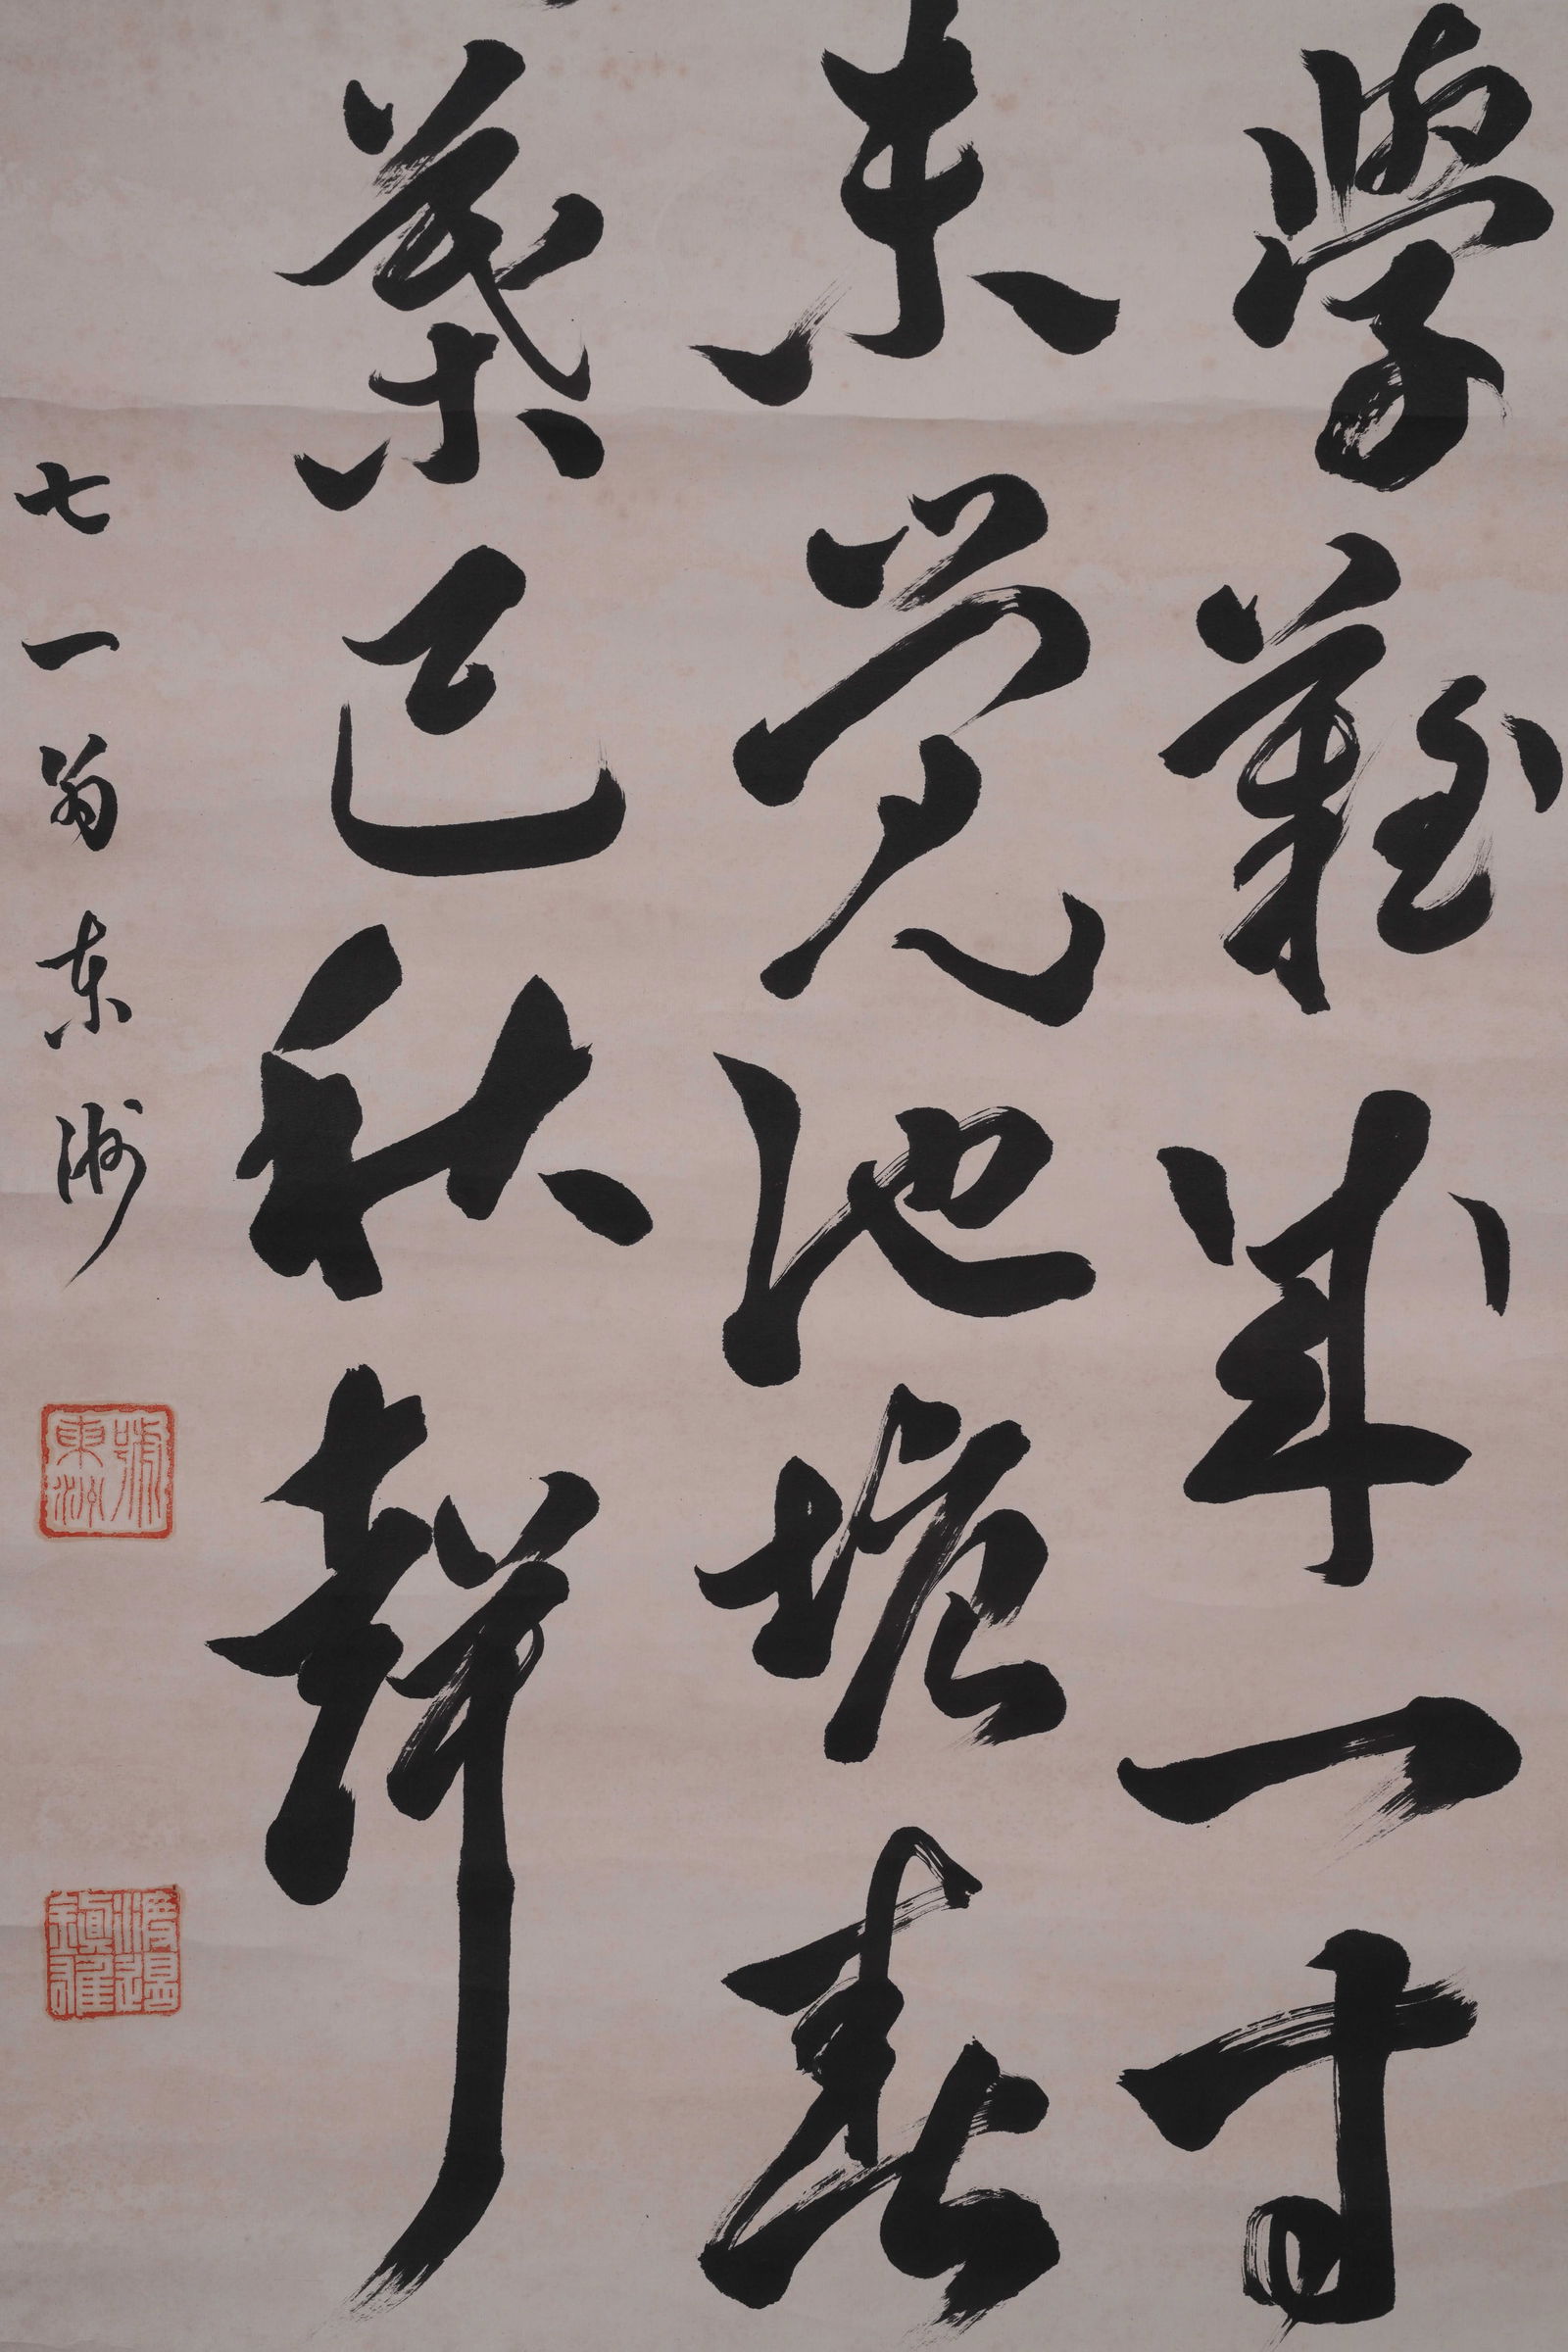 學難成一寸
未覺池塘春
葉已秋聲
七一翁東洲
號東洲